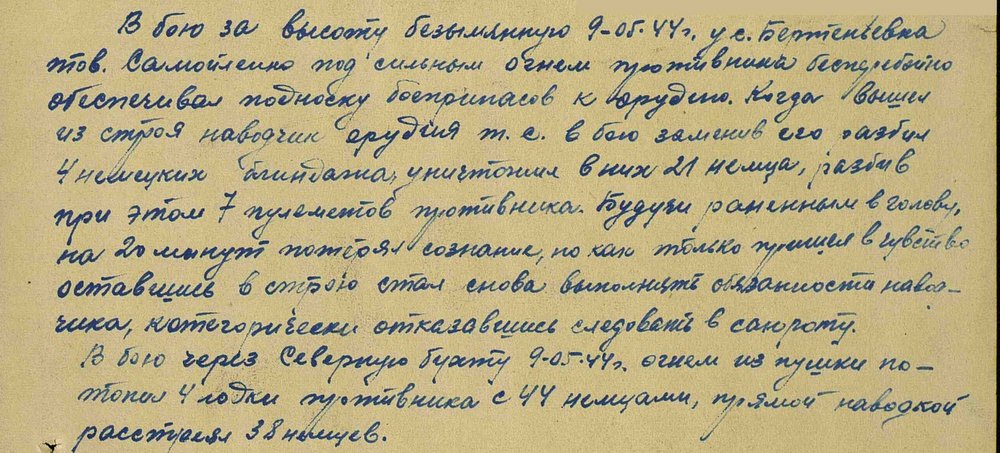 В бою за высоту безымянную 9-05-44г. у с. Бертеньевка
тов. Самойленко под сильным огнем противника бесперебойно
обеспечивал подноску боеприпасов к орудию. Когда вышел
из строя наводчик орудия т. С. в бою заменив его разбил
4 немецких блиндажа, уничтожил в них 21 немца, разбив
при этом 7 пулеметов противника. Будучи раненным в голову,
на 20 минут потерял сознание, но как только пришел в чувство
оставшись в строю стал снова выполнять обязанности навод-
чика, категорически отказавшись следовать в санроту.
В бою через Северную бухту 9-05-44г. огнем из пушки по-
топил 4 лодки противника с 44 немцами, прямой наводкой
расстрелял 38 немцев.